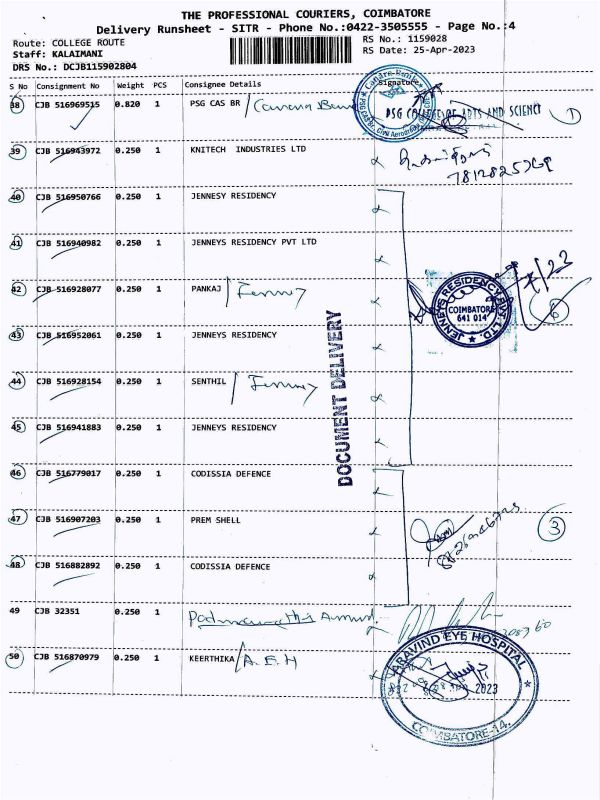 THE PROFESSIONAL COURIERS, COIMBATORE
Delivery Runsheet - SITR - Phone No.:0422-3505555 - Page No.:4
Route: COLLEGE ROUTE
RS No.: 1159028
Staff: KALAIMANI
RS Date: 25-Apr-2023
DRS No.: DCJB115902804
S No Consignment No Weight PCS Consignee Details Signature
38 CJB 516969515 0.820 1 PSG CAS BR / Canara Bank
PSG COLLEGE OF ARTS AND SCIENCE 1
39 CJB 516943972 0.250 1 KNITECH INDUSTRIES LTD
7812825769
40 CJB 516950766 0.250 1 JENNESY RESIDENCY
41 CJB 516940982 0.250 1 JENNEYS RESIDENCY PVT LTD
42 CJB 516928077 0.250 1 PANKAJ / Jenneys
JENNEYS RESIDENCY PVT. LTD.
COIMBATORE
641 014
6
43 CJB 516952061 0.250 1 JENNEYS RESIDENCY
44 CJB 516928154 0.250 1 SENTHIL / Jenneys
45 CJB 516941883 0.250 1 JENNEYS RESIDENCY
DOCUMENT DELIVERY
46 CJB 516779017 0.250 1 CODISSIA DEFENCE
47 CJB 516907203 0.250 1 PREM SHELL
3
48 CJB 516882892 0.250 1 CODISSIA DEFENCE
49 CJB 32351 0.250 1
50 CJB 516870979 0.250 1 KEERTHIKA / A.E.H
ARAVIND EYE HOSPITAL
2023
COIMBATORE-14.